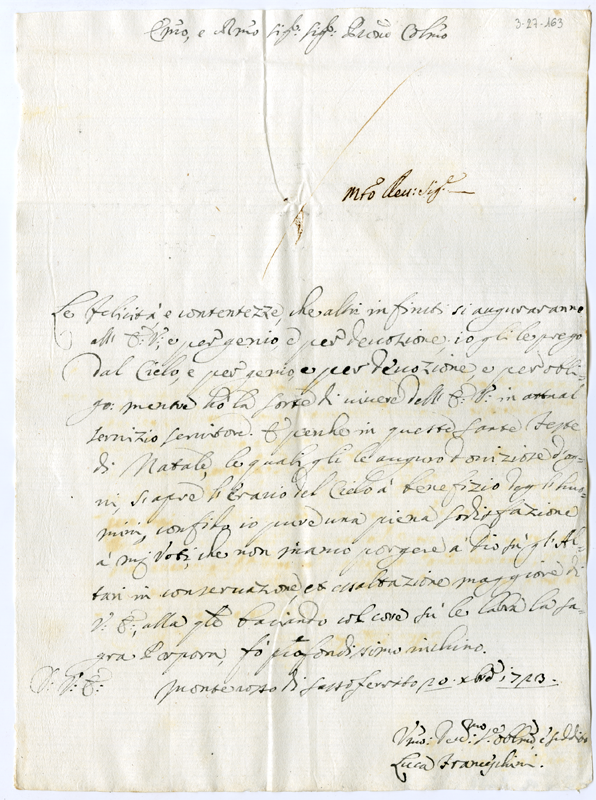 3-27-163
Emo, e Rmo Sigr: Sigr: Prone Colmo
Mto Reu: Sigr
Le felicità e contentezze, che altri infiniti si auguraranno
all' E: V: e per genio e per deuozione, io gli le prego
dal Cielo, e per genio, e per deuozione e per obli-
go: mentre hò la sorte di uiuere dell' E: V: in attual
seruizio seruitore. E perche in queste sante feste
di Natale, le quali gli le auguro douiziose d'on-
ni, si apre l'Erario del Cielo à benefizio degl' huo-
mini, confido io pure una piena sodisfazione
a' miei Voti, che non manco porgere à Dio sù gl' Al-
tari in conseruazione, et essaltazione maggiore di
V: E:, alla qle baciando col core sù le labra la sa-
gra Porpora, fò profondissimo inchino.
D: V: E: Monterosso di Sassoferrato 20 xbre 1723.
Vmo: Deumo Seruo
Luca Franceschini.